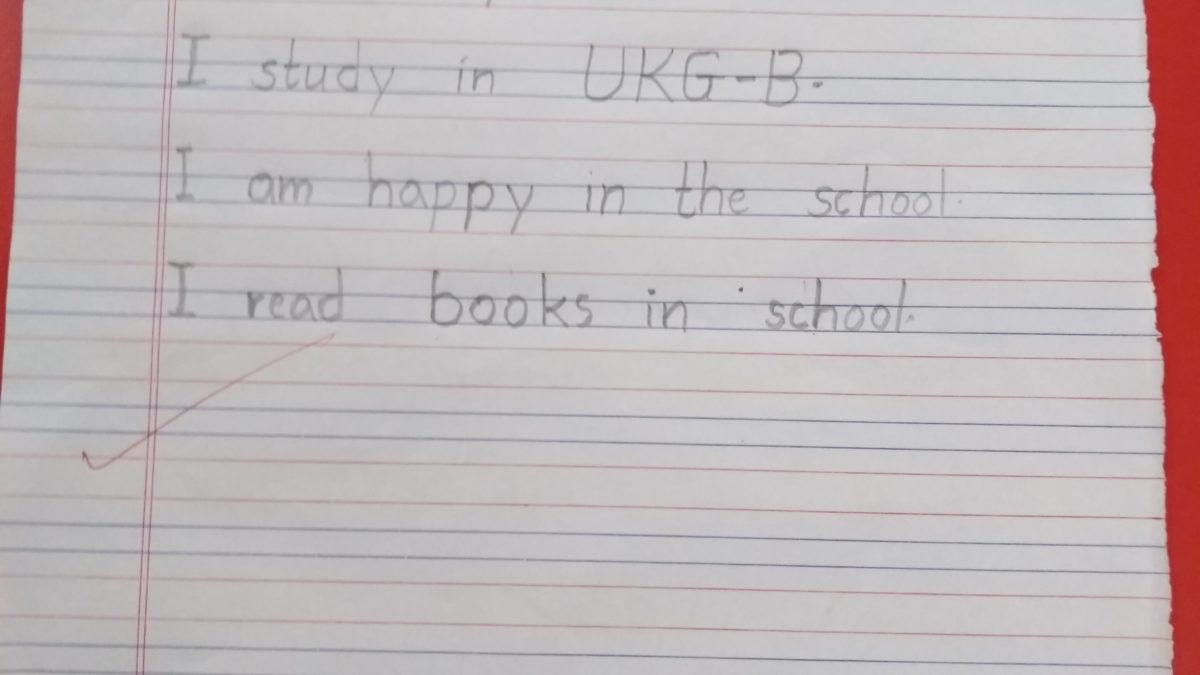 I study in UKG-B.
I am happy in the school.
I read books in school.